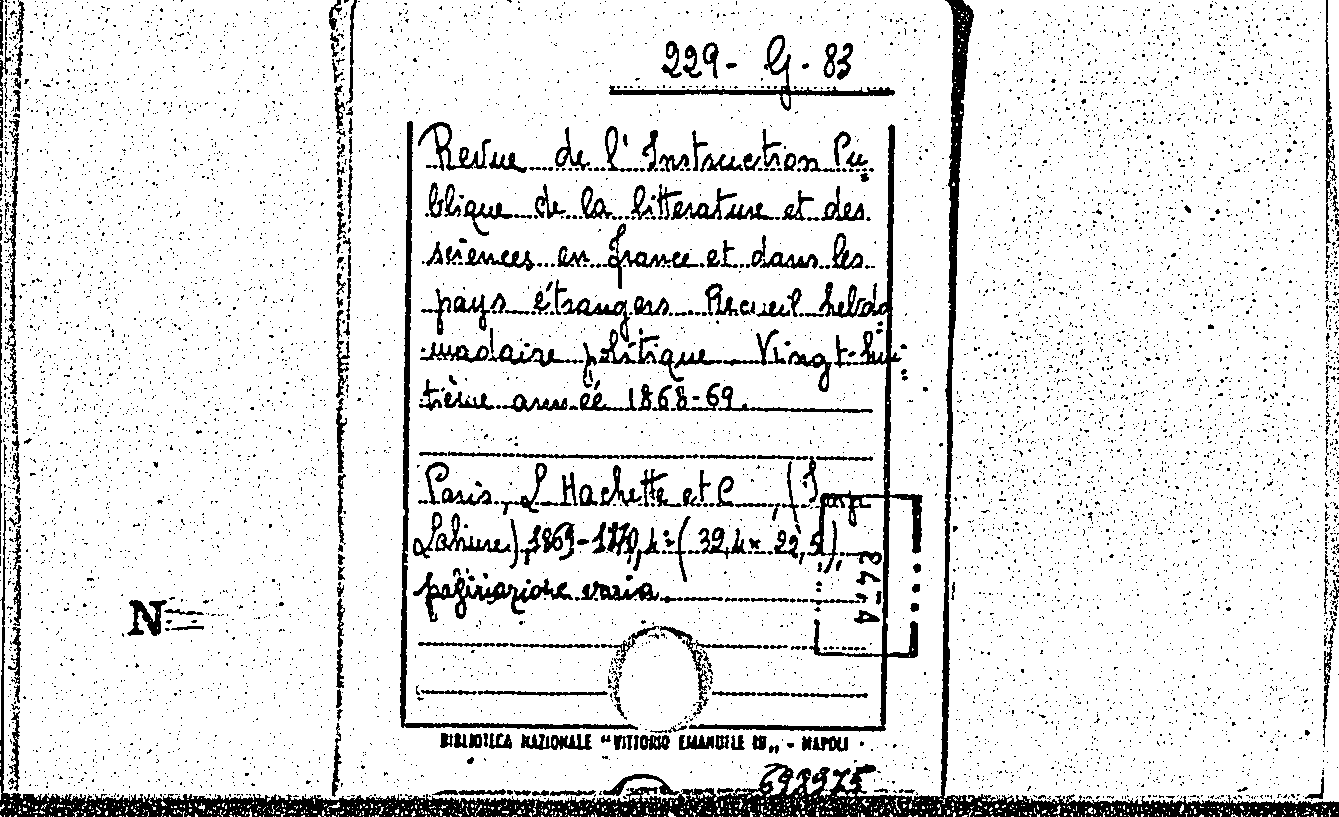 229 - G - 83
Revue de l'Instruction Pu
blique de la littérature et des
sciences en France et dans les
pays étrangers Recueil hebdo
madaire politique. Vingt-hui
tième année 1868-69.
Paris, L Hachette et C, (Imp.
Lahure), 1869-1870, 4° (39,4 x 22,5),
paginazione varia.
N
BIBLIOTECA NAZIONALE "VITTORIO EMANUELE III" - NAPOLI